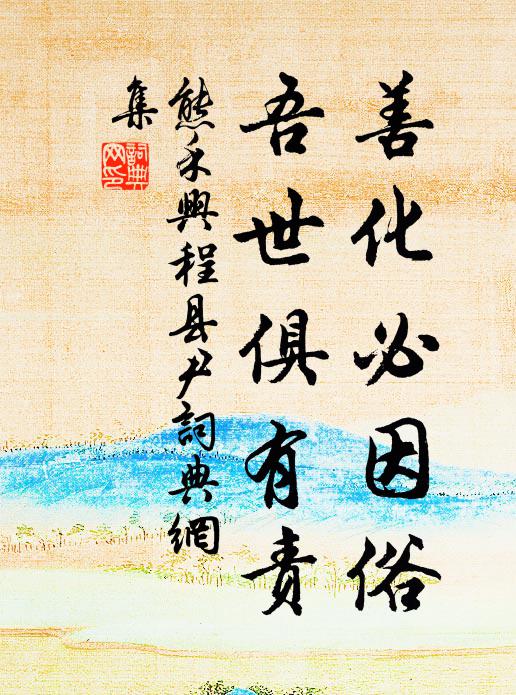 善化必因俗
吾世俱有责
熊禾興程县尹詞典網
集
詞典網印